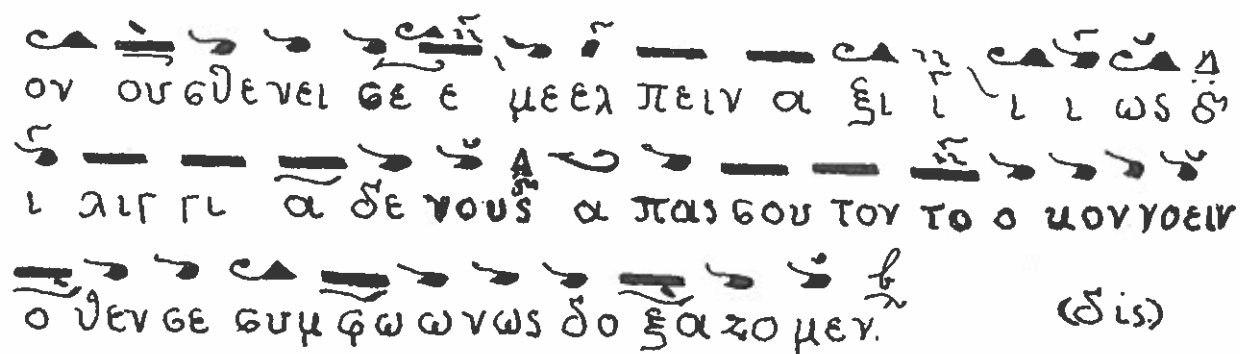 ον ου σθε νει σε ε με ελ πειν α ξι ι ι ι ως δ
ι λιγ γι α δε νους α πας σου τον το ο κον νο ειν
ο θεν σε συμ φω ω νως δο ξα ζο μεν. (δίς.)